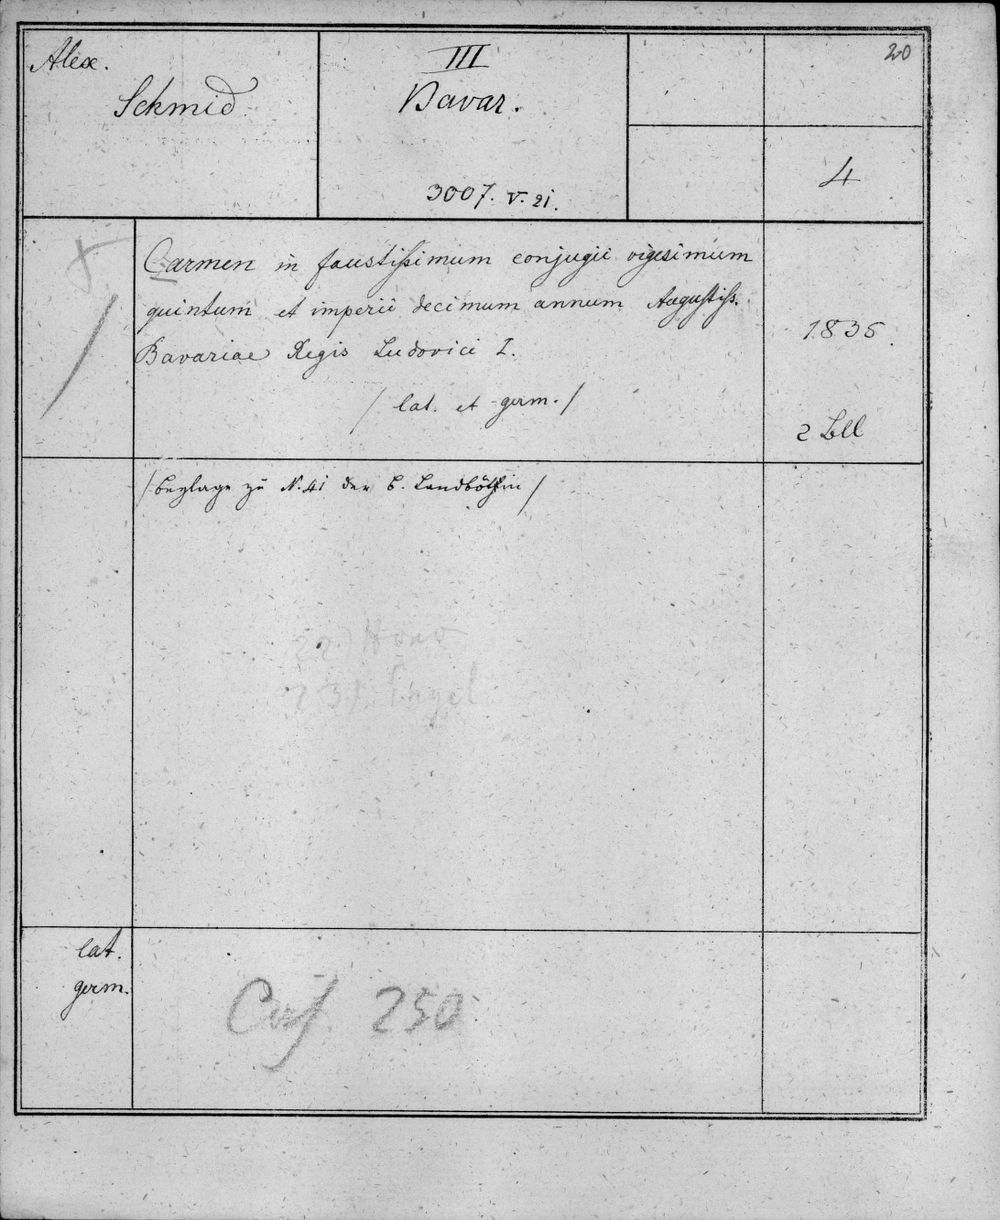 Alex.
Schmid
III
Bavar.
3007. V. 21.
20
4
Carmen in faustissimum conjugii vigesimum
quintum et imperii decimum annum Augustiss.
Bavariae Regis Ludovici I.
/ lat. et germ. /
1835.
2 Bll
/ Beylage zu N. 41 der b. Landbötin /
lat.
germ.
250